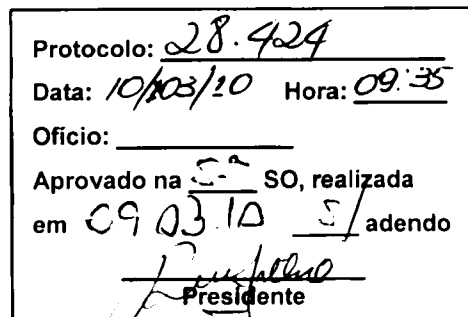 Protocolo: 28.424
Data: 10/03/10 Hora: 09:35
Ofício:
Aprovado na 5ª SO, realizada
em 09 03 10 S/ adendo
Presidente